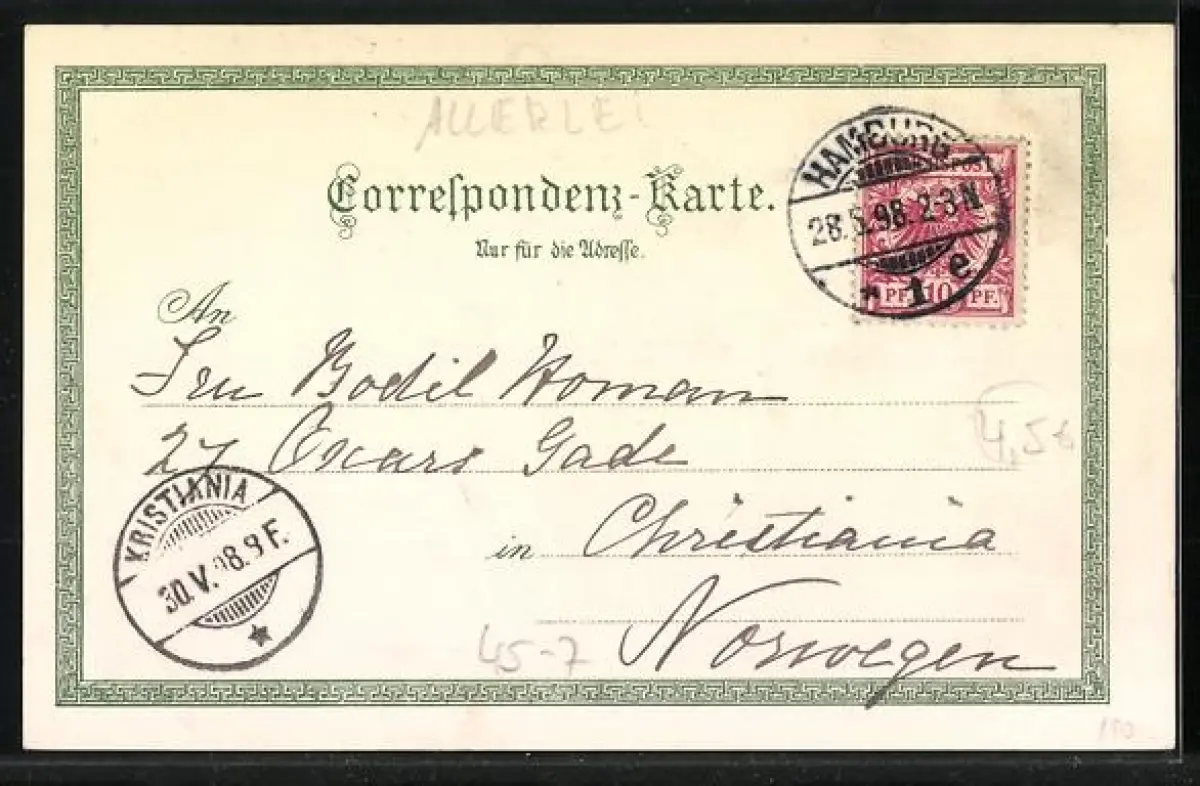 ALLERLEI
Correspondenz-Karte.
Nur für die Adresse.
HAMBURG
28.5.98.2-3N
* 1 e
PF 10 PF.
An
Fru Bodil Homan
27 Oscars Gade
in Christiania
Norwegen
KRISTIANIA
30.V.98.9F.
45-7
150